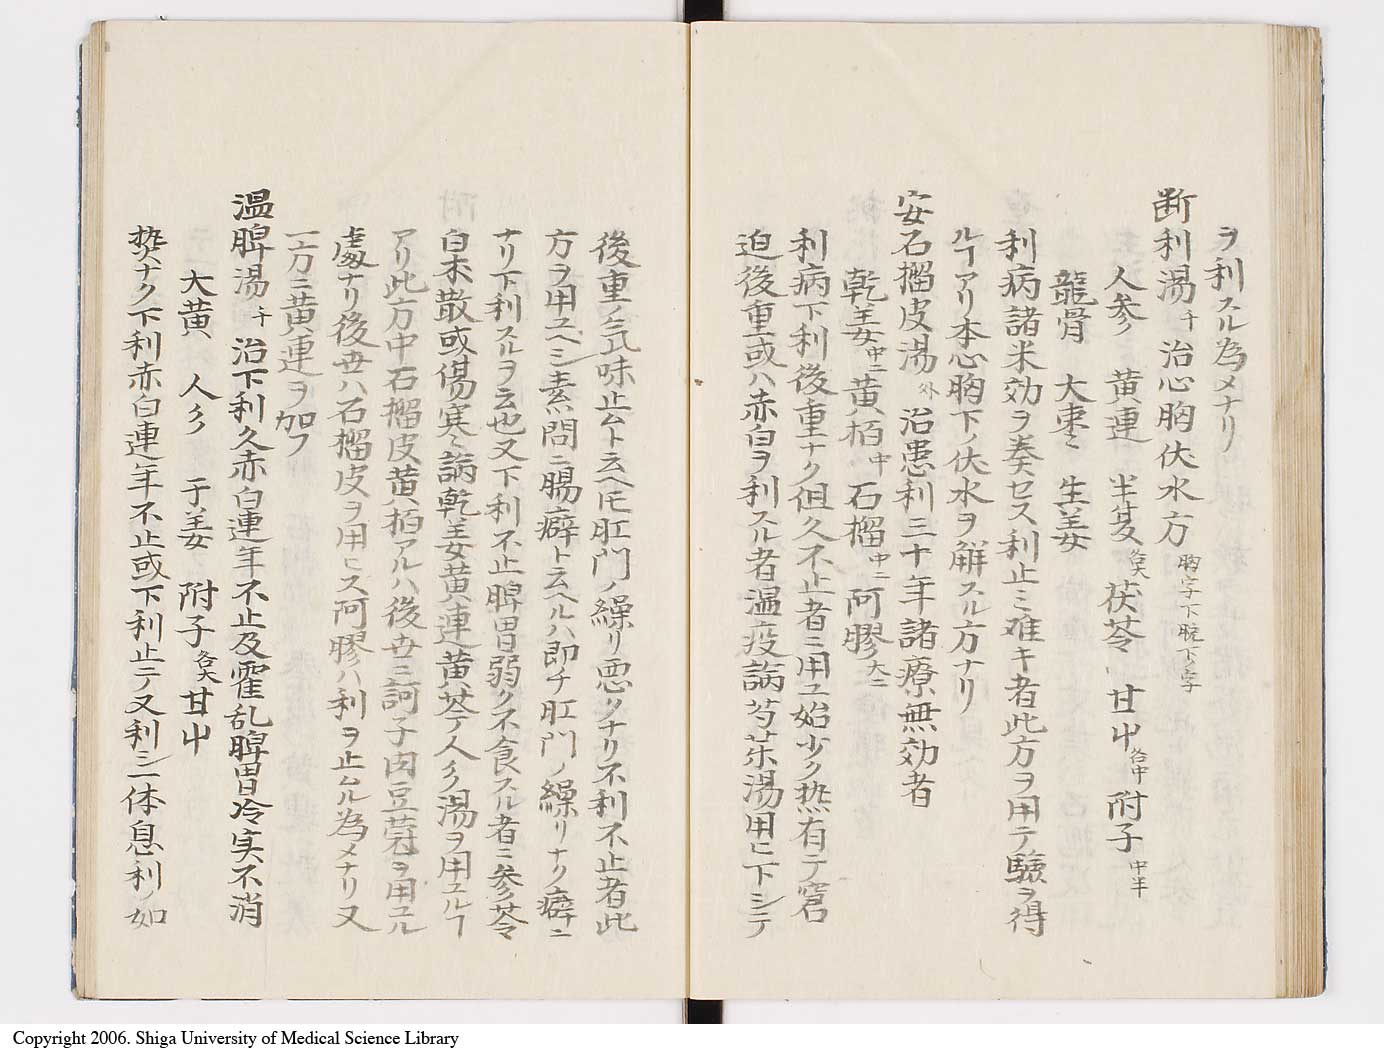 ヲ利スル為メナリ
断利湯千治心胸伏水方胸字下脱下字
人参黄連半夏各大茯苓甘中各中附子中半
龍骨大棗ミ生姜
利病諸米効ヲ奏セス利止ミ难キ者此方ヲ用テ験ヲ得
ルヿアリ本心胸下ノ伏水ヲ解スル方ナリ
安石榴皮湯外治患利三十年諸療無効者
乾姜中二黄栢中石榴中二阿膠大二
利病下利後重ナク但久不止者ニ用ユ始少ク热有テ窘
迫後重或ハ赤白ヲ利スル者温疫論芍薬湯用ヒ下シテ
後重ノ弐味止ムト云ヘ𪜈肛門ノ繰リ悪クナリ不利不止者此
方ヲ用ユヘシ素問ニ腸癖ト云ヘルハ即チ肛門ノ繰リナク癖ニ
ナリ下利スルヲ云也又下利不止脾胃弱ク不食スル者ニ参苓
白朮散或傷寒ミ論乾姜黄連黄芩人参湯ヲ用ユルヿ
アリ此方中石榴皮黄栢アルハ後世ニ訶子肉豆蔲ヲ用ユル
處ナリ後世ハ石榴皮ヲ用ヒス阿膠ハ利ヲ止ムル為メナリ又
一方ニ黄連ヲ加フ
温脾湯千治下利久赤白連年不止及霍乱脾胃冷实不消
大黄人参干姜附子各大甘中
热ナク下利赤白連年不止或下利止テ又利シ一体息利ノ如
Copyright 2006. Shiga University of Medical Science Library